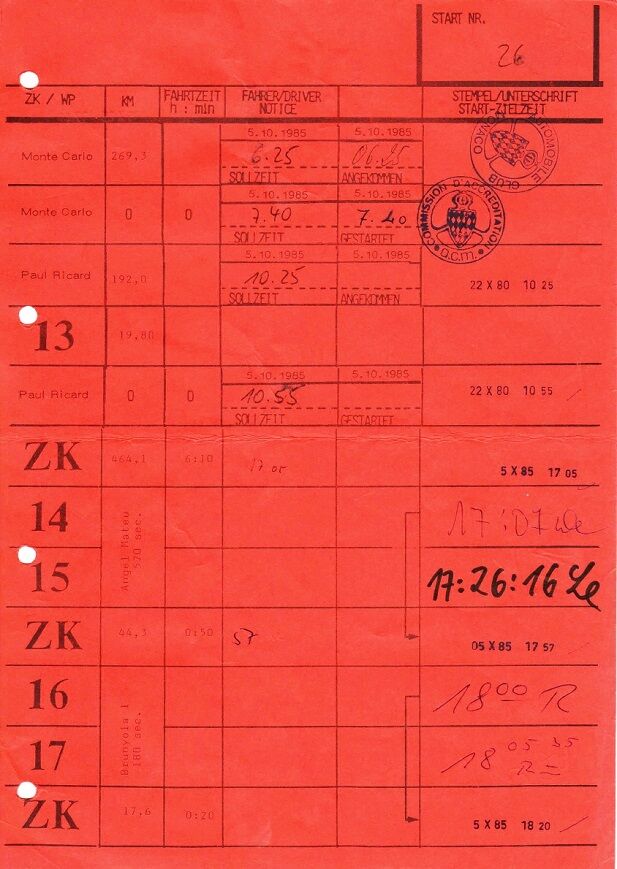 START NR.
26
ZK / WP KM FAHRTZEIT h : min FAHRER/DRIVER NOTICE STEMPEL/UNTERSCHRIFT START-ZIELZEIT
5.10.1985 5.10.1985
Monte Carlo 269,3 6.25
SOLLZEIT ANGEKOMMEN
AUTOMOBILE CLUB MONACO
5.10.1985 5.10.1985
Monte Carlo 0 0 7.40 7.40
SOLLZEIT GESTARTET
COMMISSION D'ACCREDITATION
5.10.1985 5.10.1985
Paul Ricard 192,0 10.25 22 X 80 10 25
SOLLZEIT ANGEKOMMEN
13 19,80
5.10.1985 5.10.1985
Paul Ricard 0 0 10.55 22 X 80 10 55
SOLLZEIT GESTARTET
ZK 464,1 6:10 17 05 5 X 85 17 05
14 17:07
Angel Mateu
520 sec.
15 17:26:16
ZK 44,3 0:50 57 05 X 85 17 57
16 18 00 R
Brunyola 1
180 sec.
17 18 05 35
R
ZK 17,6 0:20 5 X 85 18 20